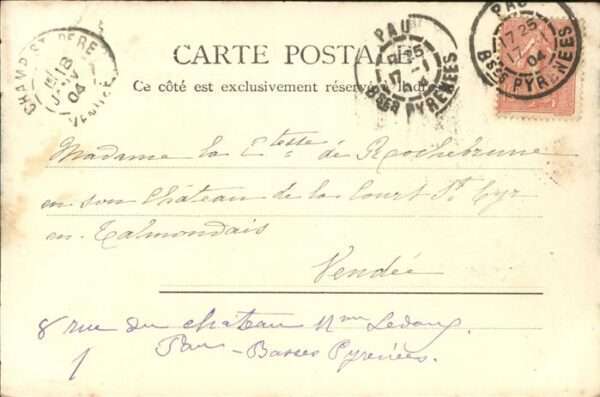 CARTE POSTALE
Ce côté est exclusivement réservé à l'adresse
PAU
17 25
17 -1
04
Bses PYRÉNÉES
PAU
17 25
17 -1
04
Bses PYRÉNÉES
CHAMP-ST-PERE
18
JANV
04
VENDÉE
Madame la Ctesse de Rochebrune
en son Château de la Court St Cyr
en Talmondais
Vendée
8 rue du chateau
Pau - Basses Pyrénées.
1